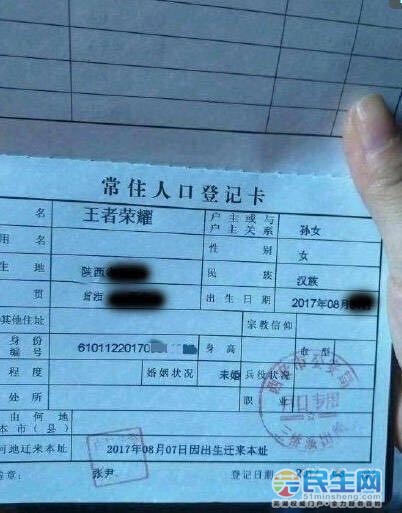 常住人口登记卡
名 王者荣耀 户主或与户主关系 孙女
用名 性别 女
生地 陕西 民族 汉族
贯 出生日期 2017年08月
其他住址 宗教信仰
身份编号 61011220170 身高 血型
程度 婚姻状况 未婚 兵役状况
处所 职业
由何地本市(县)
何地迁来本址 2017年08月07日因出生迁来本址
签章: 张尹 登记日期:
民生网
51minsheng.com